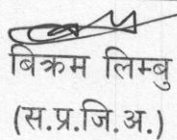 बिक्रम लिम्बु
(स.प्र.जि.अ.)